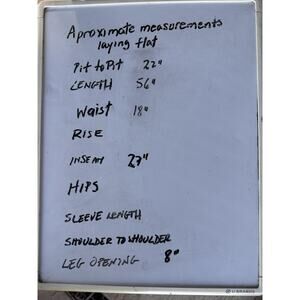 Aproximate measurements
laying flat
Pit to Pit 22"
LENGTH 56"
Waist 18"
RISE
INSEAM 27"
HIPS
SLEEVE LENGTH
SHOULDER TO SHOULDER
LEG OPENING 8"
U BRANDS